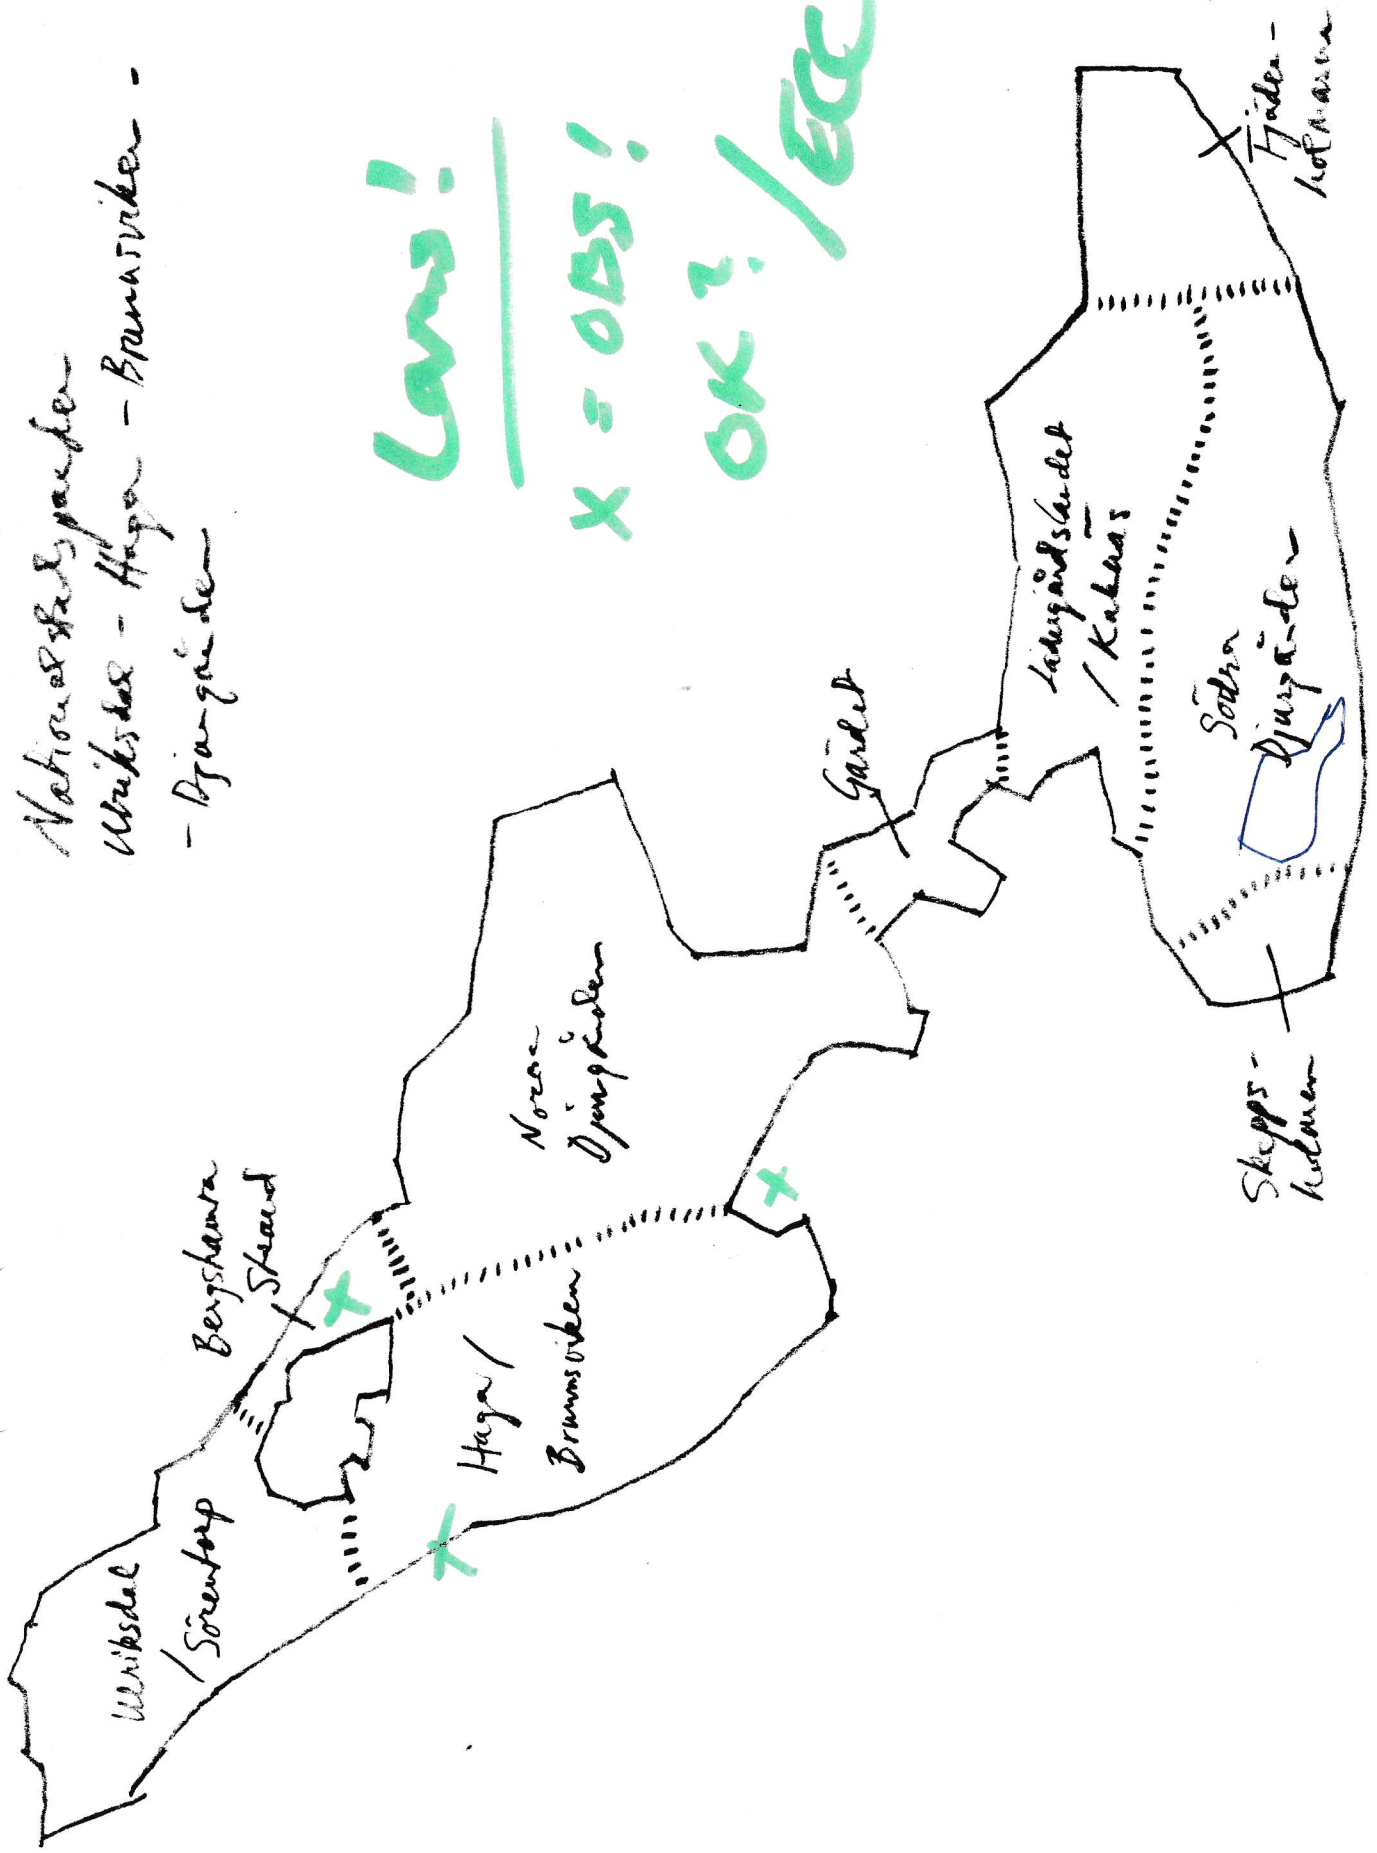 Nationalstadsparken
Ulriksdal - Haga - Brunnsviken -
- Djurgården
Lars!
x = OBS!
OK?
/ECC
Ulriksdal
/Sörentorp
Bergshamra
Strand
Haga/
Brunnsviken
Norra
Djurgården
Gärdet
Ladugårdslandet
/Kaknäs
Södra
Djurgården
Skepps-
holmen
Fjäder-
holmarna